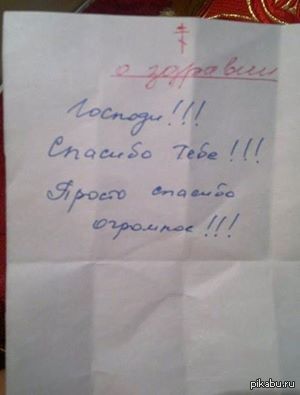 о здравии
Господи!!!
Спасибо Тебе!!!
Просто спасибо
огромное!!!
pikabu.ru